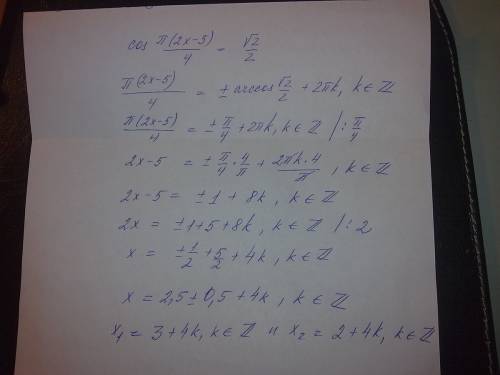 cos π(2x-5)/4 = √2/2
π(2x-5)/4 = ± arccos √2/2 + 2πk, k∈ℤ
π(2x-5)/4 = ± π/4 + 2πk, k∈ℤ /: π/4
2x-5 = ± π/4 · 4/π + 2πk·4/π, k∈ℤ
2x-5 = ±1 + 8k, k∈ℤ
2x = ±1+5+8k, k∈ℤ /:2
x = ±1/2 + 5/2 + 4k, k∈ℤ
x = 2,5 ± 0,5 + 4k, k∈ℤ
x₁ = 3+4k, k∈ℤ и x₂ = 2+4k, k∈ℤ